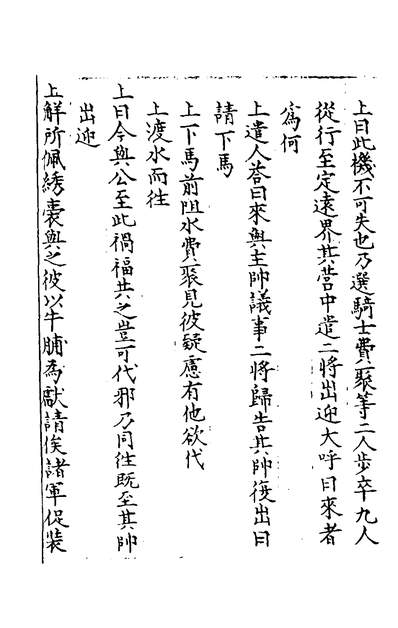 上曰此機不可失也乃選騎士費聚等二人步卒九人
從行至定遠界其營中遣二將出迎大呼曰來者
爲何
上遣人荅曰來與主帥議事二將歸告其帥復出曰
請下馬
上下馬前阻水費聚見彼疑慮有他欲代
上渡水而徃
上曰今與公至此禍福共之豈可代邪乃同徃既至其帥
出迎
上解所佩綉囊與之彼以牛脯爲獻請俟諸軍促裝